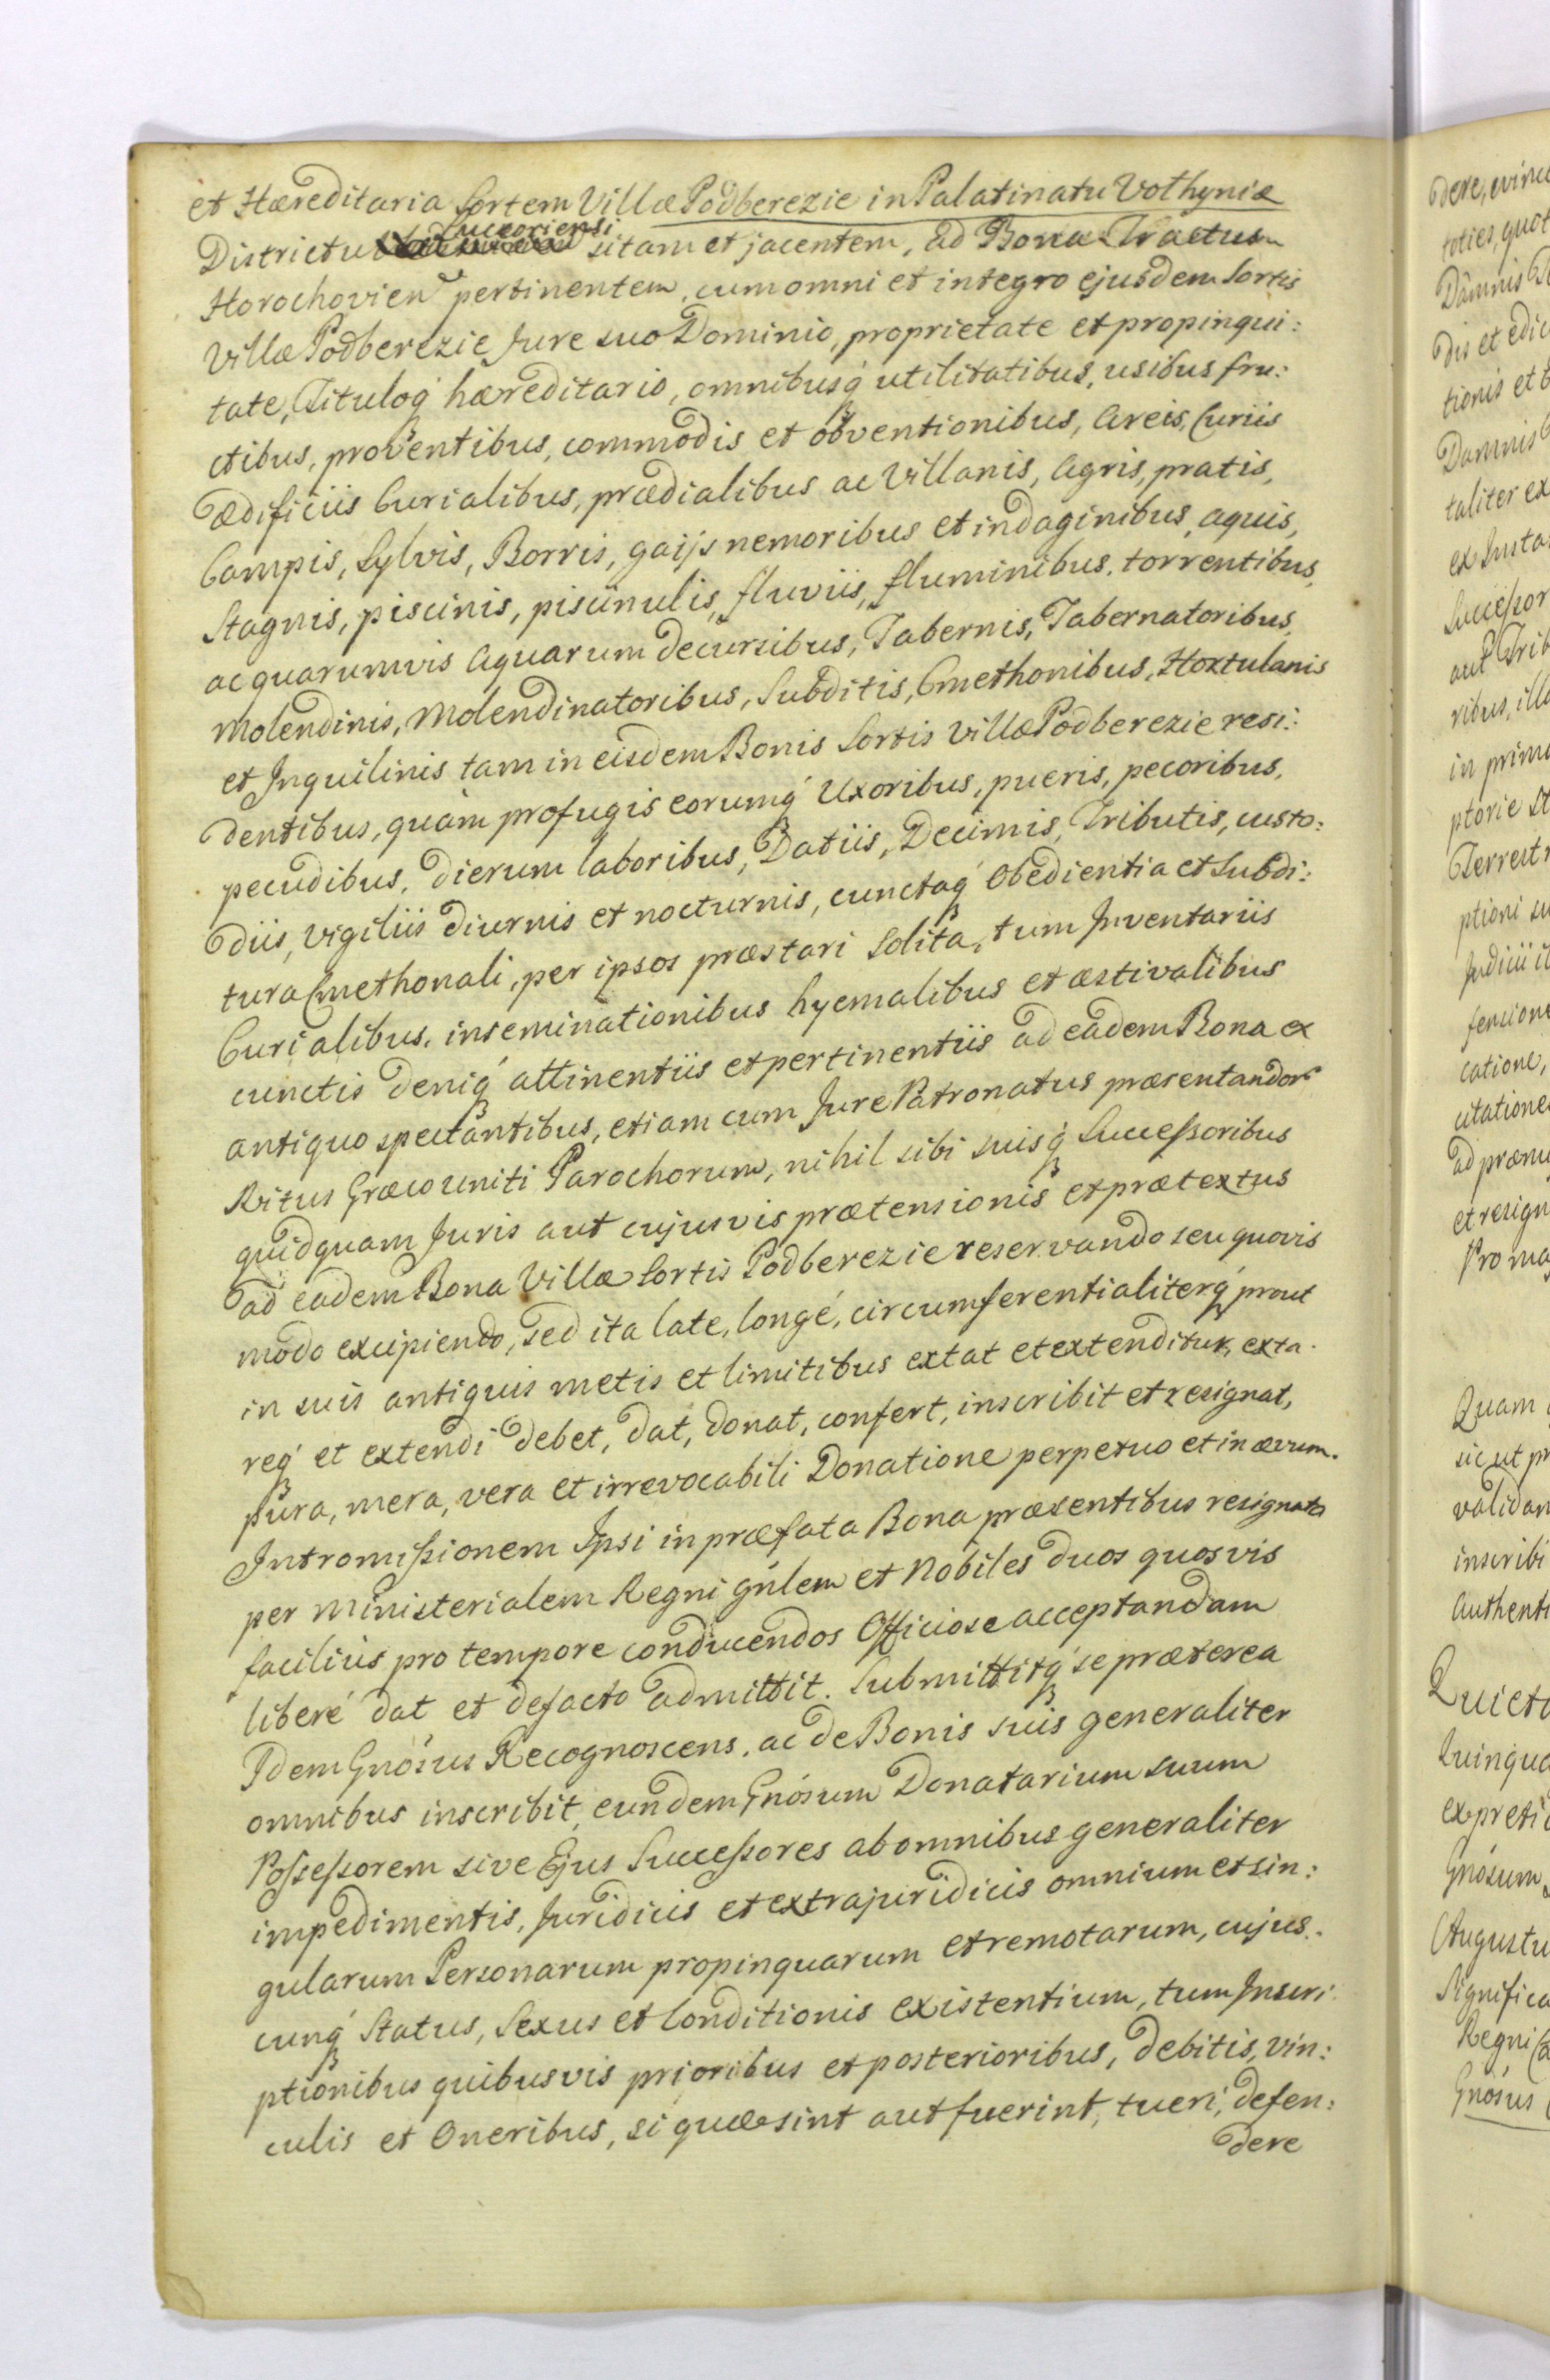 et Hæreditaria Sortem Villæ Podberezie in Palatinatu Volhyniæ
Districtu Luceoriensi sitam et jacentem, ad Bona Tractum
Horochovien pertinentem, cum omni et integro ejusdem Sortis
Villæ Podberezie Jure suo Dominio, proprietate et propinqui:
tate, Tituloq́ hæreditario, omnibusq́ utilitatibus, usibus fru:
ctibus, proventibus, commodis et obventionibus, Areis, Curiis
Ædificiis Curialibus, prædialibus ac Villanis, Agris, pratis,
Campis, Sylvis, Borris, gaijs nemoribus et indaginibus, aquis,
Stagnis, piscinis, piscinulis, fluviis, fluminibus, torrentibus,
ac quarumvis Aquarum decursibus, Tabernis, Tabernatoribus,
Molendinis, Molendinatoribus, Subditis, Cmethonibus, Hortulanis
et Inquilinis tam in eisdem Bonis Sortis Villæ Podberezie resi:
dentibus, quàm profugis eorumq́ Uxoribus, pueris, pecoribus,
pecudibus, Dierum laboribus, Datiis, Decimis, Tributis, custo:
diis, vigiliis diurnis et nocturnis, cunctaq́ Obedientia et Subdi:
tura Cmethonali, per ipsos præstari Solita, tum Inventariis
Curialibus, inseminationibus hyemalibus et æstivalibus
cunctis deniq́ attinentiis et pertinentiis ad eadem Bona ex
antiquo spectantibus, etiam cum Jure Patronatus præsentandor
Ritus Græco uniti Parochorum, nihil sibi suisq́ Successoribus
quidquam Juris aut cujusvis prætensionis et prætextus
ad eadem Bona Villæ Sortis Podberezie reservando seu quovis
modo excipiendo, sed ita late, longé, circumferentialiterq́ prout
in suis antiquis metis et limitibus extat et extenditur, exta:
req́ et extendi debet, dat, donat, confert, inscribit et resignat,
pura, mera, vera et irrevocabili Donatione perpetuo et in ævum.
Intromissionem Ipsi in præfata Bona præsentibus resignata
per Ministerialem Regni Gńlem et Nobiles duos quosvis
facilius pro tempore conducendos Officiose acceptandam
liberé dat et defacto admittit. Submittitq́ se præterea
Idem Gnósus Recognoscens, ac de Bonis suis generaliter
omnibus inscribit, eundem Gnósum Donatarium suum
Possessorem sive Ejus Successores ab omnibus generaliter
impedimentis, Juridicis et extrajuridicis omnium et sin:
gularum Personarum propinquarum et remotarum, cujus:
cunq́ Status, Sexus et Conditionis existentium, tum Inscri:
ptionibus quibusvis prioribus et posterioribus, debitis, vin:
culis et Oneribus, si quæ sint aut fuerint, tueri, defen:
dere
dere, evinc
toties, quot
Damnis
dis et edic
tionis et
Damnis
taliter ex
ex Insta
Successor
aut Trib
ribus, illo
in primo
ptorie st
Terrest
ptioni su
Judicii
catione,
citatione
ad præm
et resign
Pro ma
Quam
sic ut pr
validam
inscribi
Authent
Quieta
Quinqua
ex preti
Gnósum
Augustu
Significa
Regni
Gnósus